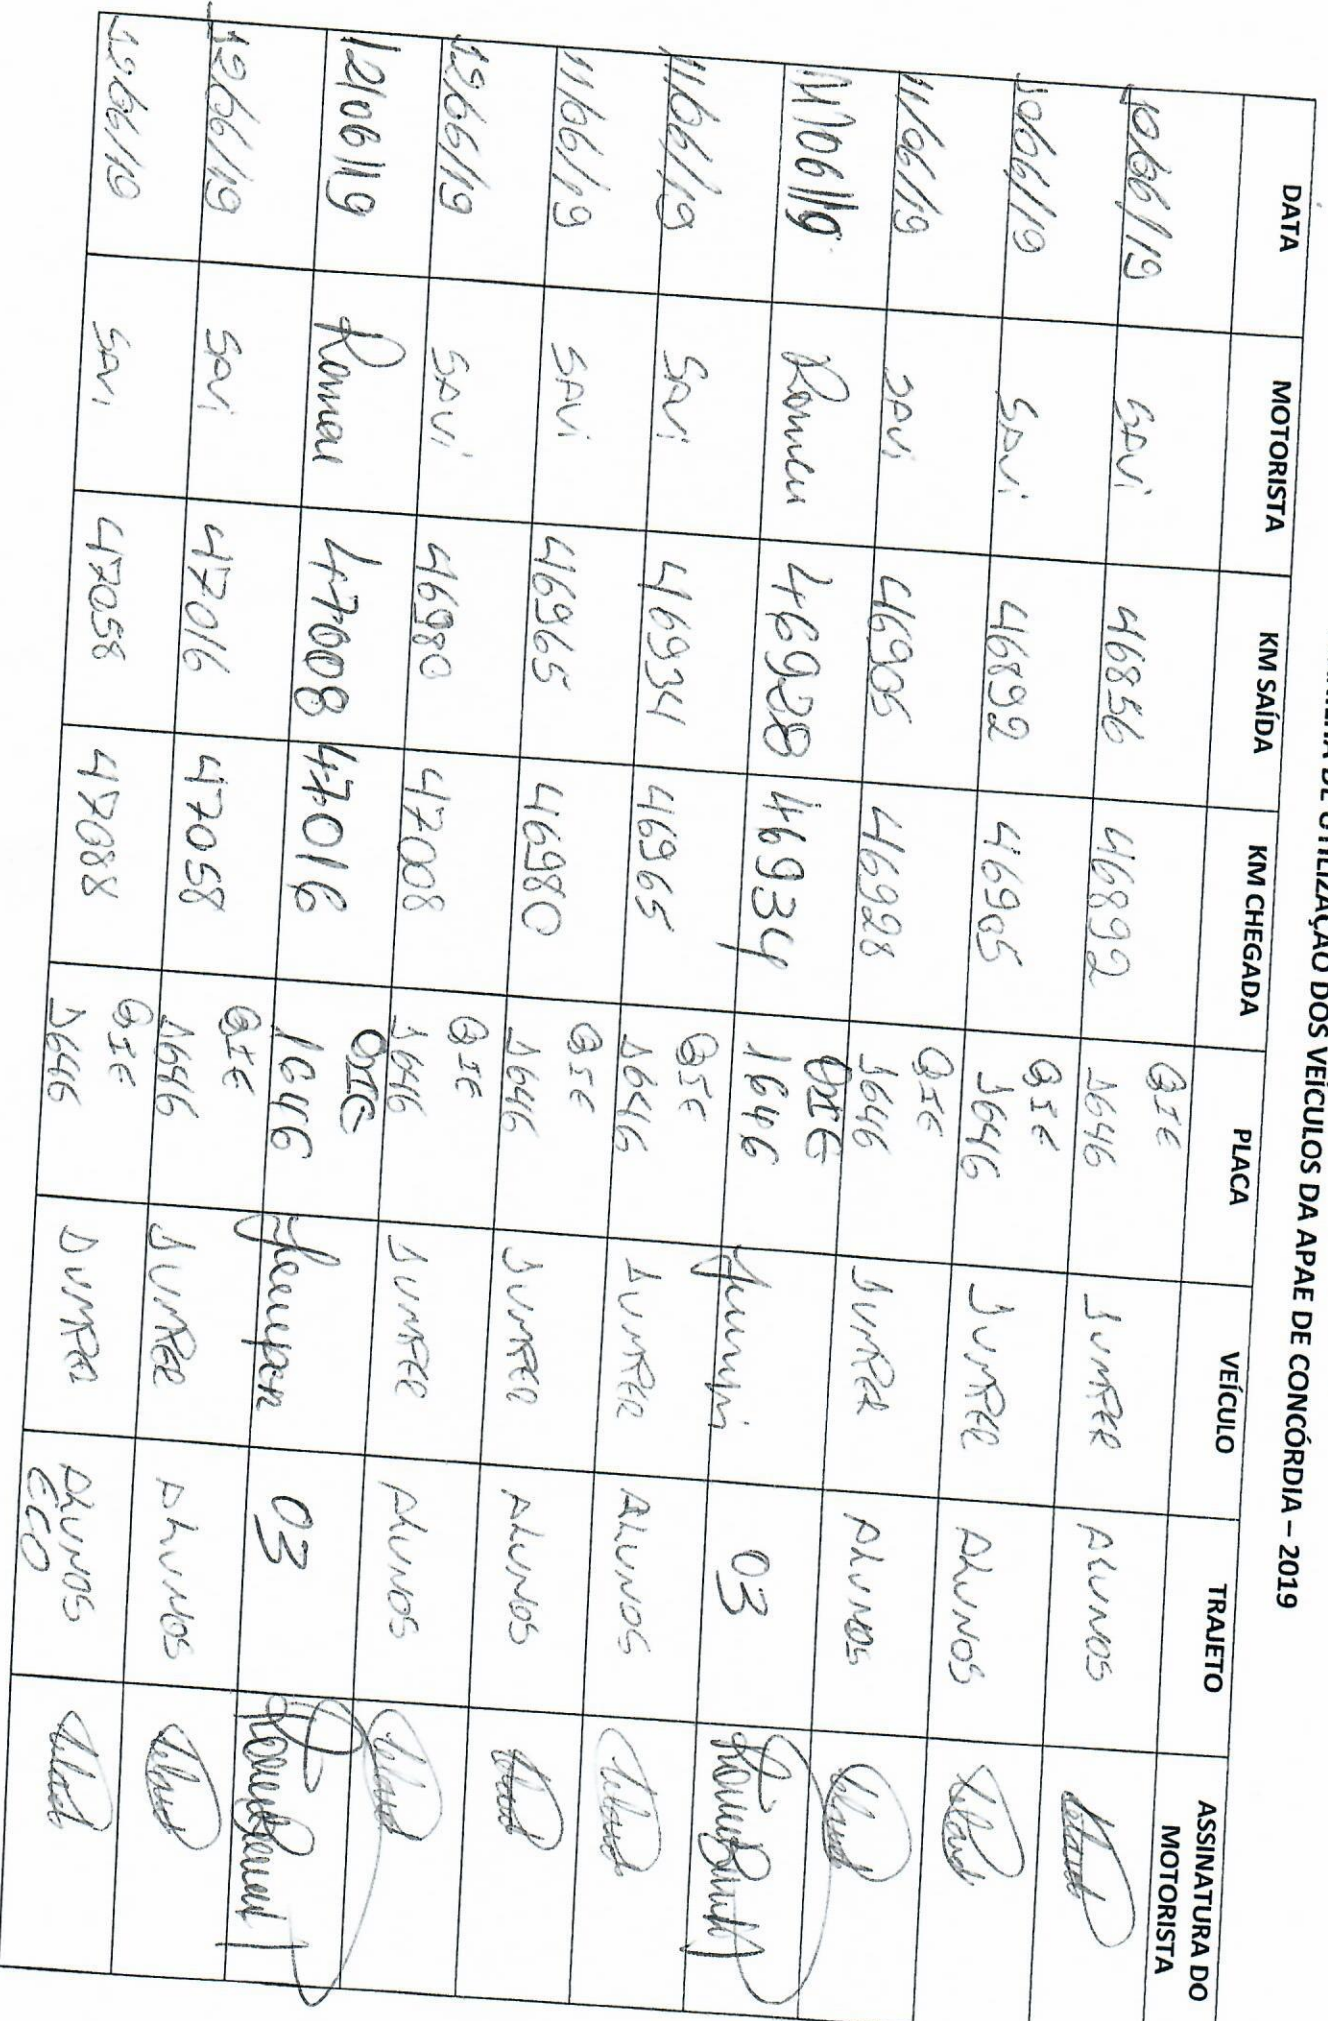 DE UTILIZAÇÃO DOS VEÍCULOS DA APAE DE CONCÓRDIA – 2019
DATA MOTORISTA KM SAÍDA KM CHEGADA PLACA VEÍCULO TRAJETO ASSINATURA DO MOTORISTA
10/06/19 SAVI 46856 46892 QIE 1646 JUMPER ALUNOS
10/06/19 SAVI 46892 46905 QIE 1646 JUMPER ALUNOS
11/06/19 SAVI 46905 46928 QIE 1646 JUMPER ALUNOS
11/06/19 Romeu 46928 46934 QIE 1646 03
11/06/19 SAVI 46934 46965 QIE 1646 JUMPER ALUNOS
11/06/19 SAVI 46965 46980 QIE 1646 JUMPER ALUNOS
12/06/19 SAVI 46980 47008 QIE 1646 JUMPER ALUNOS
12/06/19 Romeu 47008 47016 QIE 1646 Jumper 03
12/06/19 SAVI 47016 47058 QIE 1646 JUMPER ALUNOS
12/06/19 SAVI 47058 47088 QIE 1646 JUMPER ALUNOS ECO